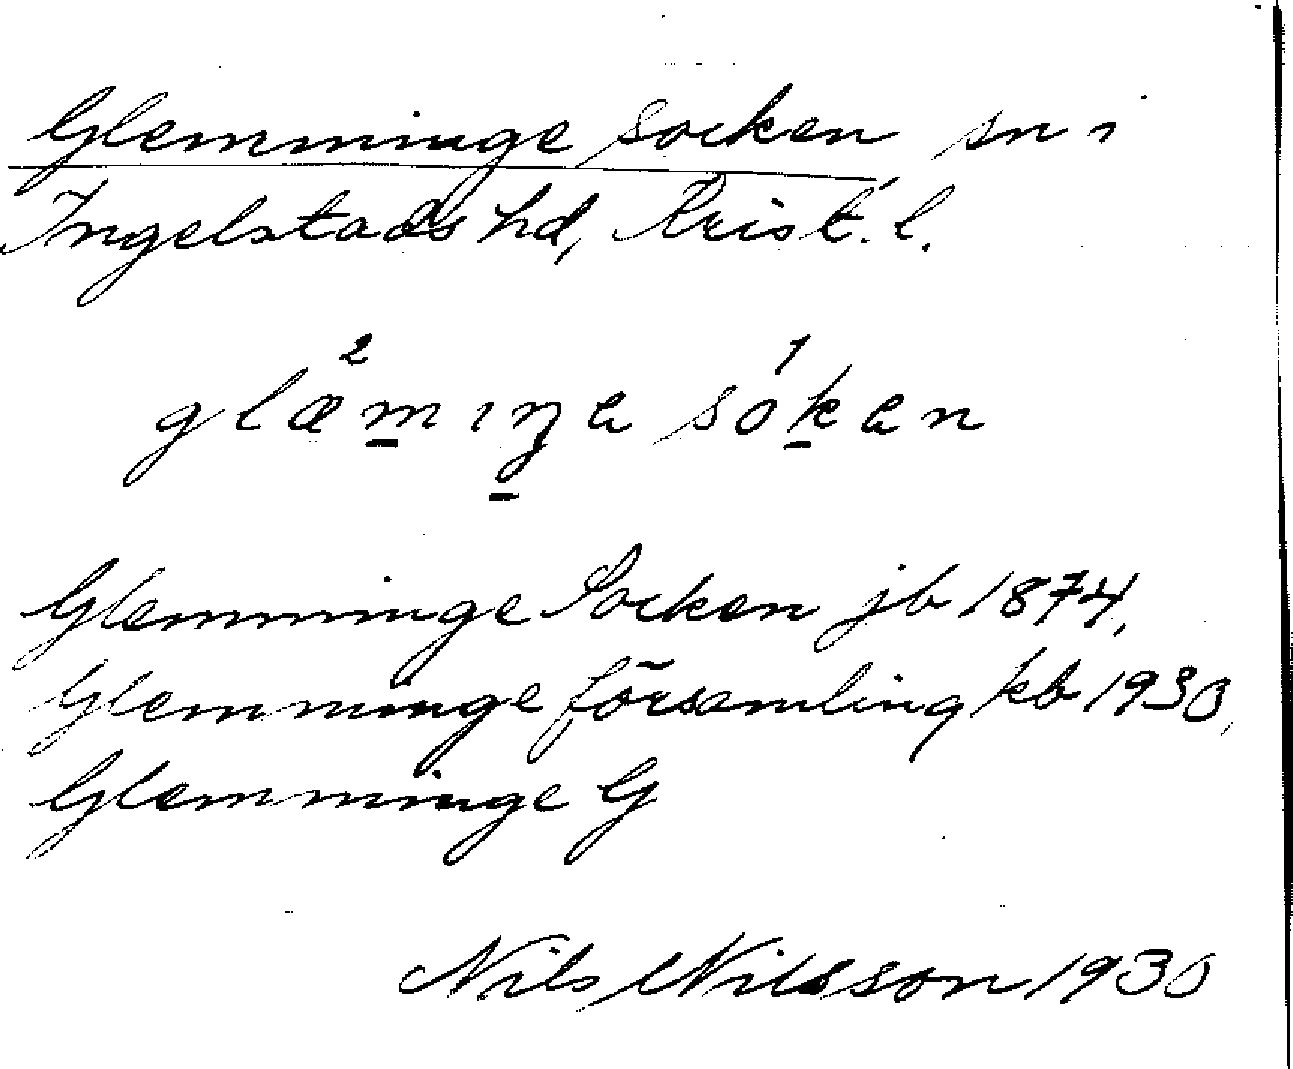 Glemminge socken sn i
Ingelstads hd, Krist. l.
2 1
glæmıŋa sokan
Glemminge Socken jb 1874,
Glemminge församling kb 1930,
Glemminge G
Nils Nilsson 1930